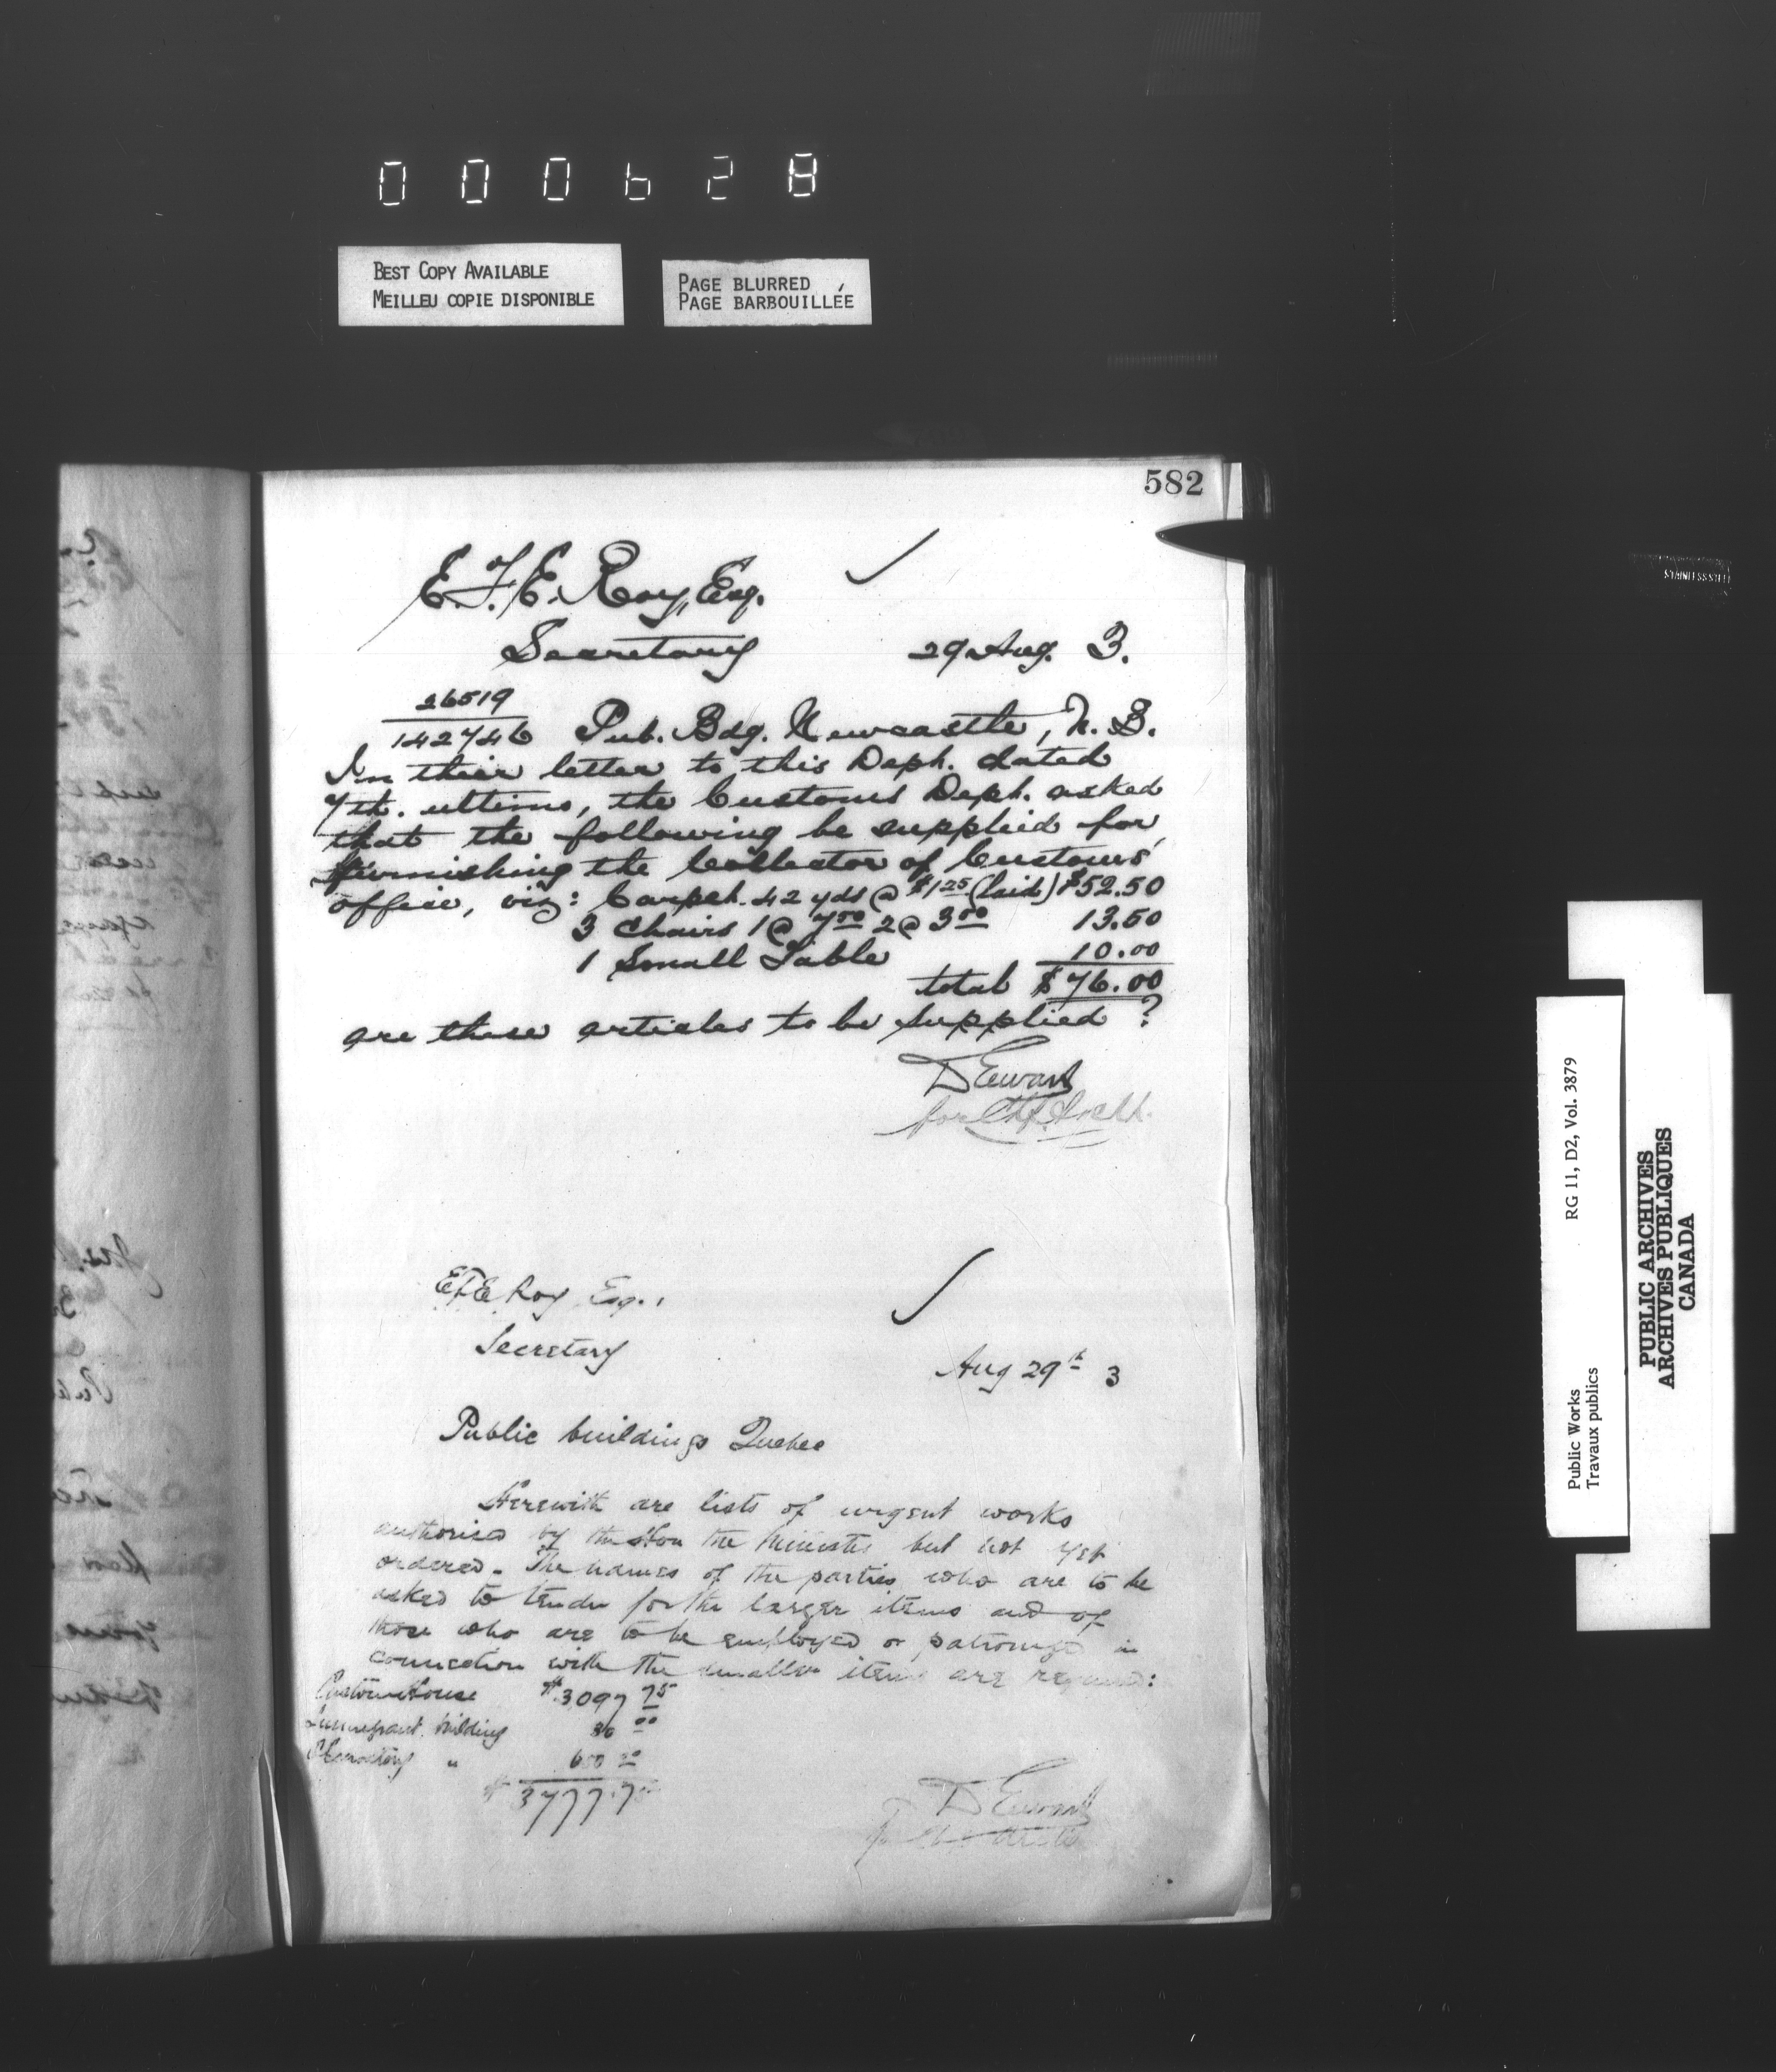 000628
BEST COPY AVAILABLE
MEILLEU COPIE DISPONIBLE
PAGE BLURRED
PAGE BARBOUILLÉE
582
E.F.E. Roy, Esq.
Secretary 29 Aug. 3.
26519
142746 Pub. Bdg. Newcastle, N.B.
In their letter to this Dept. dated
7th. ultimo, the Customs Dept. asked
that the following be supplied for
furnishing the Collector of Customs'
office, viz: Carpet. 42 yds @ $1.25 (laid) $52.50
3 Chairs 1 @ 7.50 2 @ 3.00 13.50
1 Small Table 10.00
total $76.00
are these articles to be supplied?
D Ewart
for Ch. Archt.
E F E Roy Esq.,
Secretary
Aug 29th 3
Public buildings Quebec
Herewith are lists of urgent works
authorised by the Hon the Minister but not yet
ordered. The names of the parties who are to be
asked to tender for the larger items and of
those who are to be employed or patronized in
connection with the smaller items are required:
Custom House $3097 75
Immigrant building 30 00
" 650 00
$3777.75
D Ewart
Public Works RG 11, D2, Vol. 3879
Travaux publics
PUBLIC ARCHIVES
ARCHIVES PUBLIQUES
CANADA